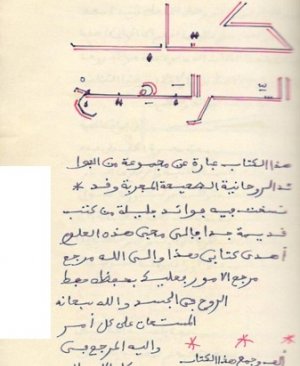 كتاب
السر البهيج
هذا الكتاب عبارة عن مجموعة من الفوا
ئد الروحانية الصحيحة المجربة وقد *
نسخت فيه فوائد جليلة من كتب
قديمة جدا فإلى محبي هذه العلوم
أهدي كتابي هذا وإلى الله مرجع
مرجع الأمور بعليك بحفظه حفظ
الروح في الجسد والله سبحانه
المستعان على كل أمر
وإليه المرجع
* * *
وجمع هذا الكتاب